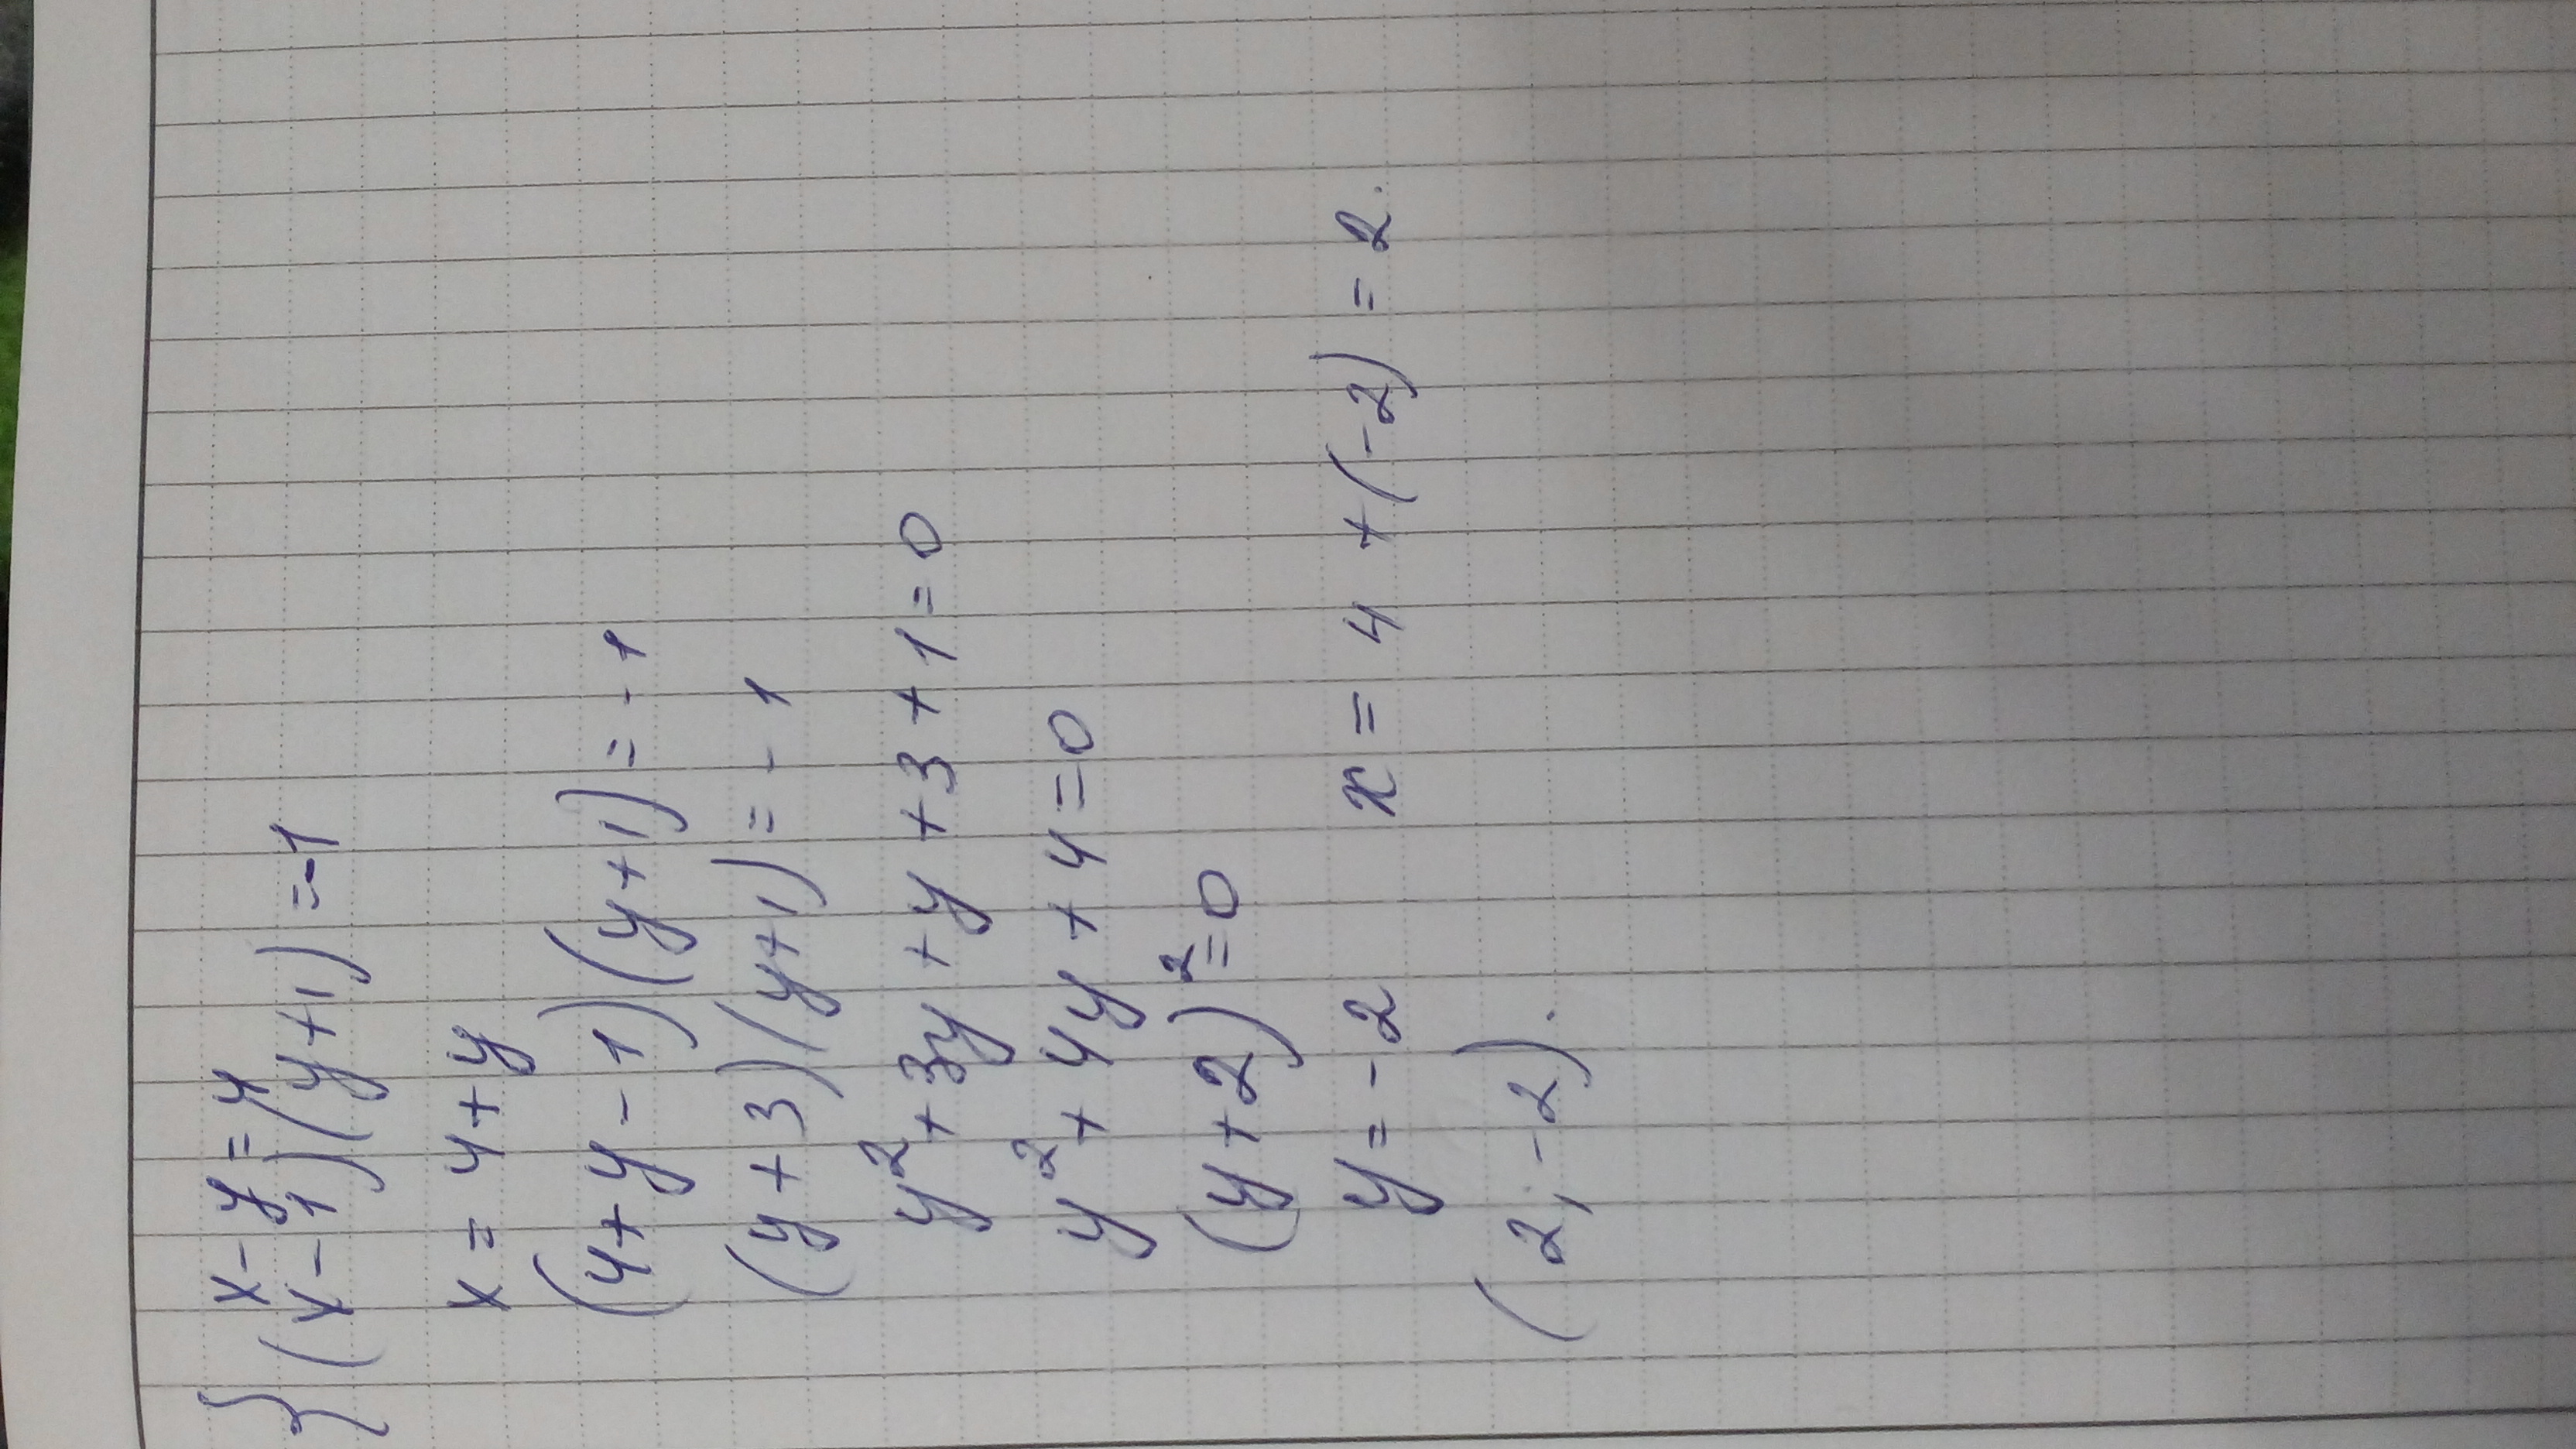 { x - y = 4
(x - 1)(y + 1) = -1
x = 4 + y
(4 + y - 1)(y + 1) = -1
(y + 3)(y + 1) = -1
y² + 3y + y + 3 + 1 = 0
y² + 4y + 4 = 0
(y + 2)² = 0
y = -2 x = 4 + (-2) = 2.
(2; -2).